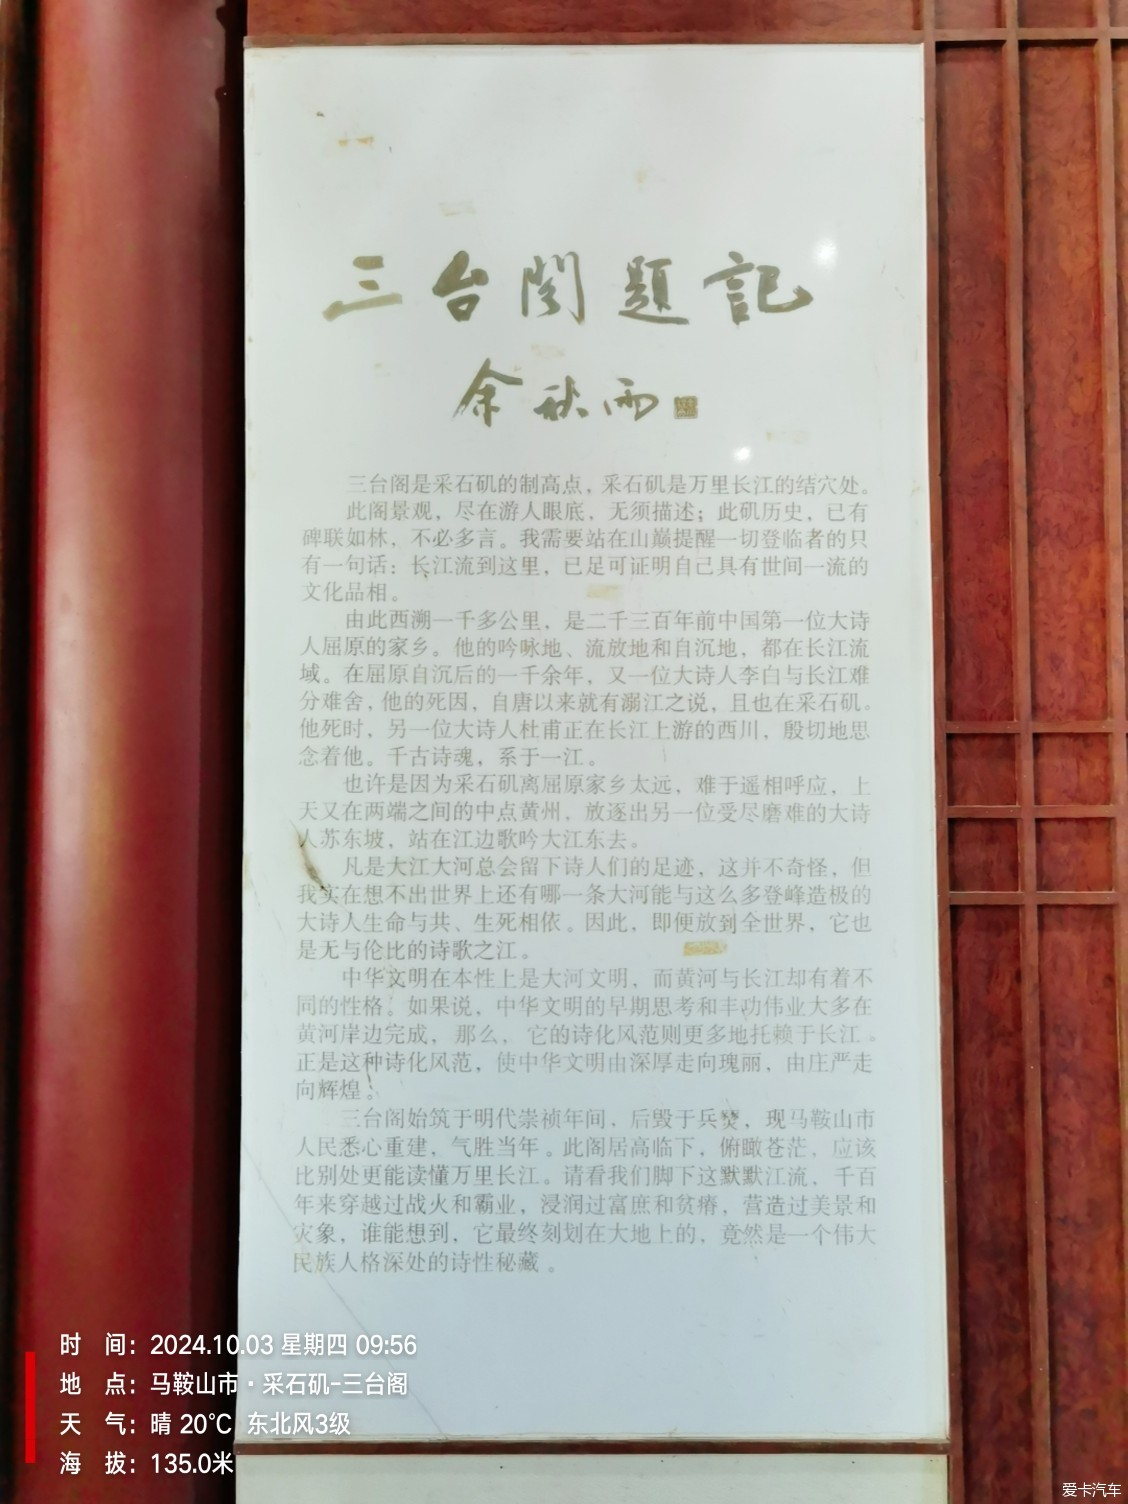 三台閣題記
余秋雨
三台阁是采石矶的制高点，采石矶是万里长江的结穴处。
此阁景观，尽在游人眼底，无须描述；此矶历史，已有
碑联如林，不必多言。我需要站在山巅提醒一切登临者的只
有一句话：长江流到这里，已足可证明自己具有世间一流的
文化品相。
由此西溯一千多公里，是二千三百年前中国第一位大诗
人屈原的家乡。他的吟咏地、流放地和自沉地，都在长江流
域。在屈原自沉后的一千余年，又一位大诗人李白与长江难
分难舍，他的死因，自唐以来就有溺江之说，且也在采石矶。
他死时，另一位大诗人杜甫正在长江上游的西川，殷切地思
念着他。千古诗魂，系于一江。
也许是因为采石矶离屈原家乡太远，难于遥相呼应，上
天又在两端之间的中点黄州，放逐出另一位受尽磨难的大诗
人苏东坡，站在江边歌吟大江东去。
凡是大江大河总会留下诗人们的足迹，这并不奇怪，但
我实在想不出世界上还有哪一条大河能与这么多登峰造极的
大诗人生命与共、生死相依。因此，即便放到全世界，它也
是无与伦比的诗歌之江。
中华文明在本性上是大河文明，而黄河与长江却有着不
同的性格。如果说，中华文明的早期思考和丰功伟业大多在
黄河岸边完成，那么，它的诗化风范则更多地托赖于长江。
正是这种诗化风范，使中华文明由深厚走向瑰丽，由庄严走
向辉煌。
三台阁始筑于明代崇祯年间，后毁于兵燹，现马鞍山市
人民悉心重建，气胜当年。此阁居高临下，俯瞰苍茫，应该
比别处更能读懂万里长江。请看我们脚下这默默江流，千百
年来穿越过战火和霸业，浸润过富庶和贫瘠，营造过美景和
灾象，谁能想到，它最终刻划在大地上的，竟然是一个伟大
民族人格深处的诗性秘藏。
时 间：2024.10.03 星期四 09:56
地 点：马鞍山市·采石矶-三台阁
天 气：晴 20℃ 东北风3级
海 拔：135.0米
爱卡汽车